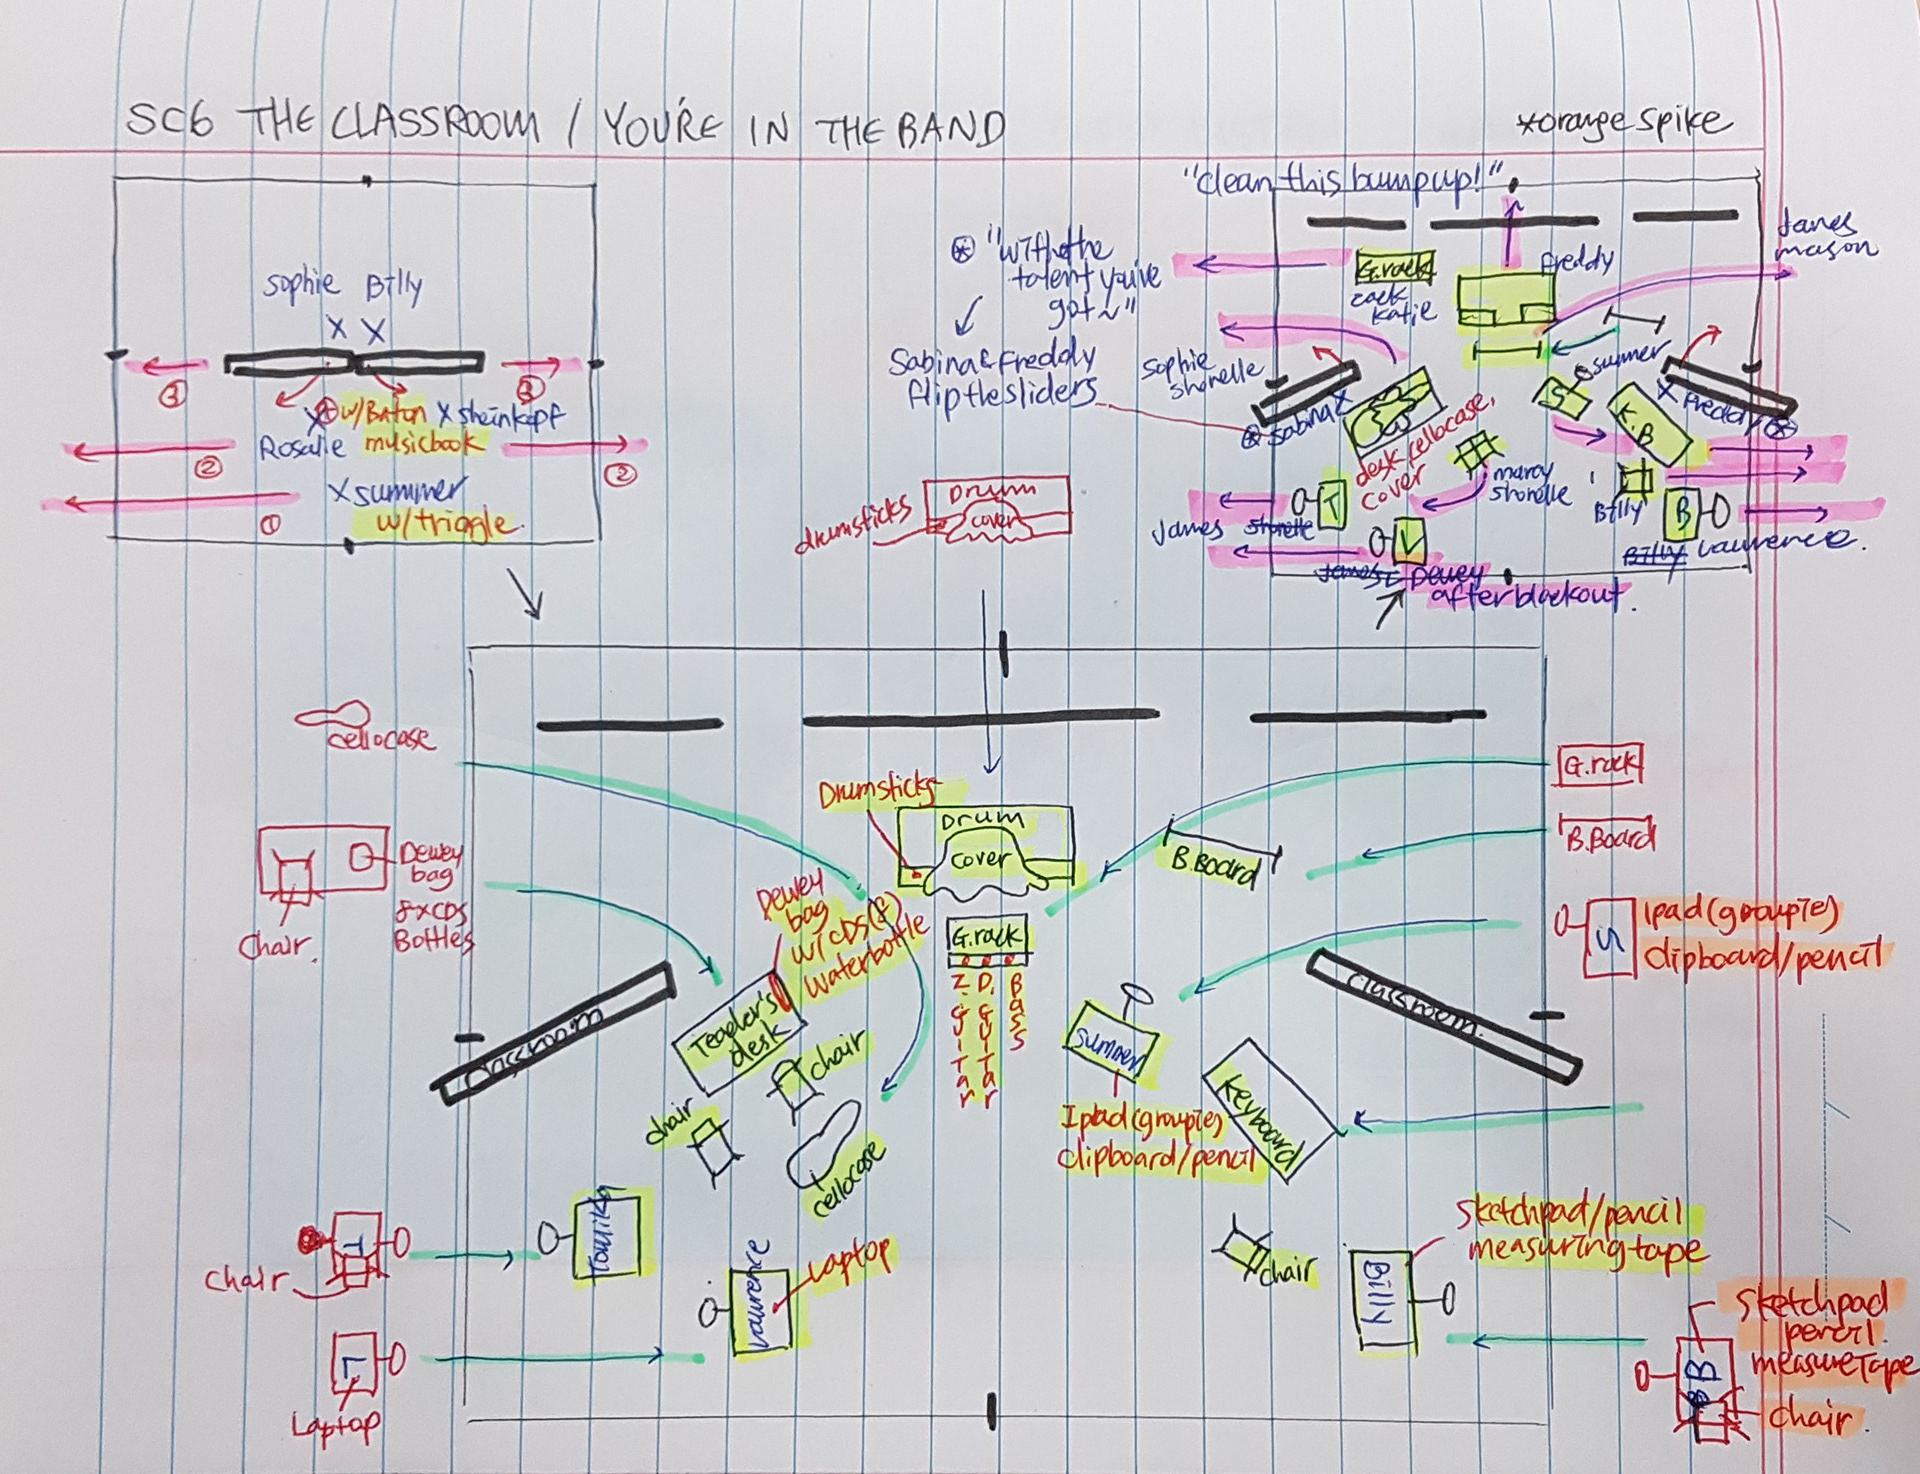 SC6 THE CLASSROOM / YOU'RE IN THE BAND
*orange spike
sophie Billy
X X
③
③
X w/Baton X sheinkopf
Rosalie musicbook
②
②
X summer
①
w/triggle
"clean this bump up!"
"with the
talent you've
got~"
Sabina & Freddy
flip the sliders
G.rack
zack
katie
freddy
James
mason
sophie
shonelle
summer
S
K.B
X Freddy
Sabina X
desk, cellocase,
cover
marcy
shonelle
T
James shonelle
V
Billy
B
Billy Lawrence.
James Dewey
after blackout.
Drum
cover
drumsticks
cellocase
Dewey
bag
8xCDS
Bottles
Chair.
G.rack
B.Board
Ipad(groupie)
clipboard/pencil
S
Drumsticks
Drum
cover
B.Board
Dewey
bag
w/CDS(8)
waterbottle
G.rack
Z.GUITar
D.GUITar
Bass
Teacler's
desk
chair
chair
cellocase
classroom
classroom.
summer
Ipad(groupie)
clipboard/pencil
Keyboard
Tomika
Lawrence
Laptop
chair
Billy
sketchpad/pencil
measuring tape
T
chair
L
Laptop
sketchpad
pencil.
measureTape
B
chair.